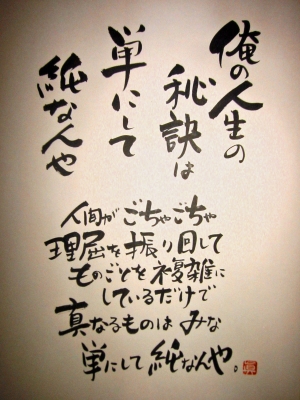 俺の人生の
秘訣は
単にして
純なんや
人間がごちゃごちゃ
理屈を振り回して
ものごとを複雑に
しているだけで
真なるものはみな
単にして純なんや。